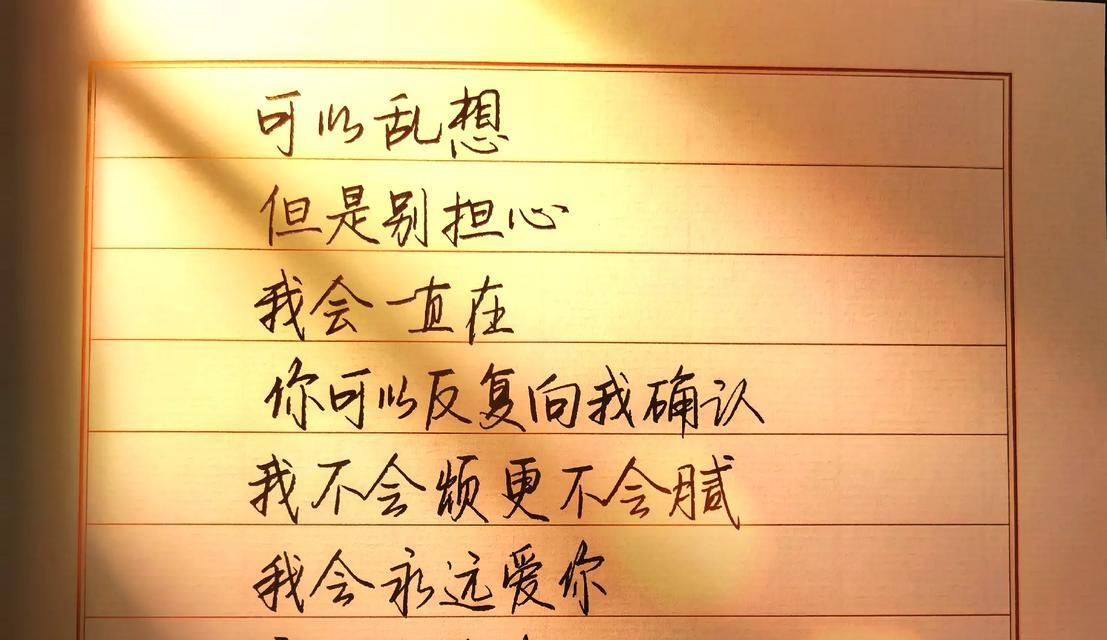 可以乱想
但是别担心
我会一直在
你可以反复向我确认
我不会烦更不会腻
我会永远爱你